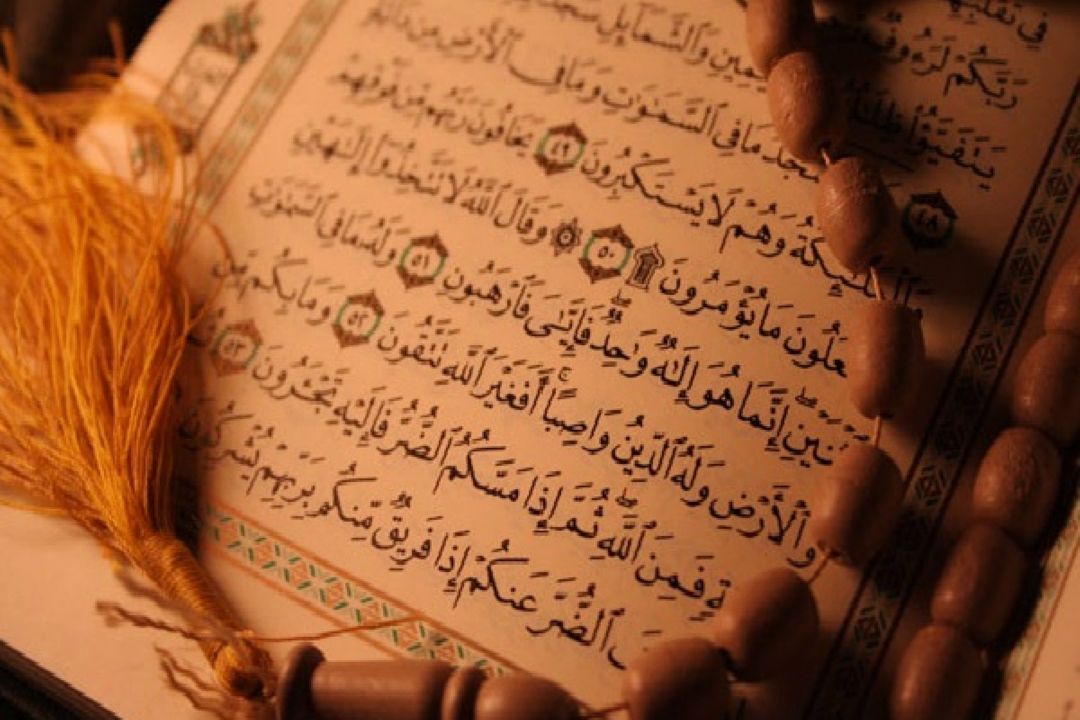 فِي تَقَلُّبِهِمْ
رَبَّكُمْ لَرَءُوفٌ
يَتَفَيَّؤُا۟ ظِلَٰلُهُۥ وَٱلشَّمَآئِلِ سُجَّدًا
٤٨ مَا فِى ٱلسَّمَٰوَٰتِ وَمَا فِى ٱلْأَرْضِ مِن دَآبَّةٍ
وَٱلْمَلَٰٓئِكَةُ وَهُمْ لَا يَسْتَكْبِرُونَ ٤٩ يَخَافُونَ رَبَّهُم مِّن فَوْقِهِمْ
يَفْعَلُونَ مَا يُؤْمَرُونَ ۩ ٥٠ ۞ وَقَالَ ٱللَّهُ لَا تَتَّخِذُوٓا۟ إِلَٰهَيْنِ
ٱثْنَيْنِ إِنَّمَا هُوَ إِلَٰهٌ وَٰحِدٌ فَإِيَّٰىَ فَٱرْهَبُونِ ٥١ وَلَهُۥ مَا فِى ٱلسَّمَٰوَٰتِ
وَٱلْأَرْضِ وَلَهُ ٱلدِّينُ وَاصِبًا أَفَغَيْرَ ٱللَّهِ تَتَّقُونَ ٥٢ وَمَا بِكُم مِّن
فَمِنَ ٱللَّهِ ثُمَّ إِذَا مَسَّكُمُ ٱلضُّرُّ فَإِلَيْهِ تَجْـَٔرُونَ ٥٣
ٱلضُّرَّ عَنكُمْ إِذَا فَرِيقٌ مِّنكُم بِرَبِّهِمْ يُشْرِكُونَ